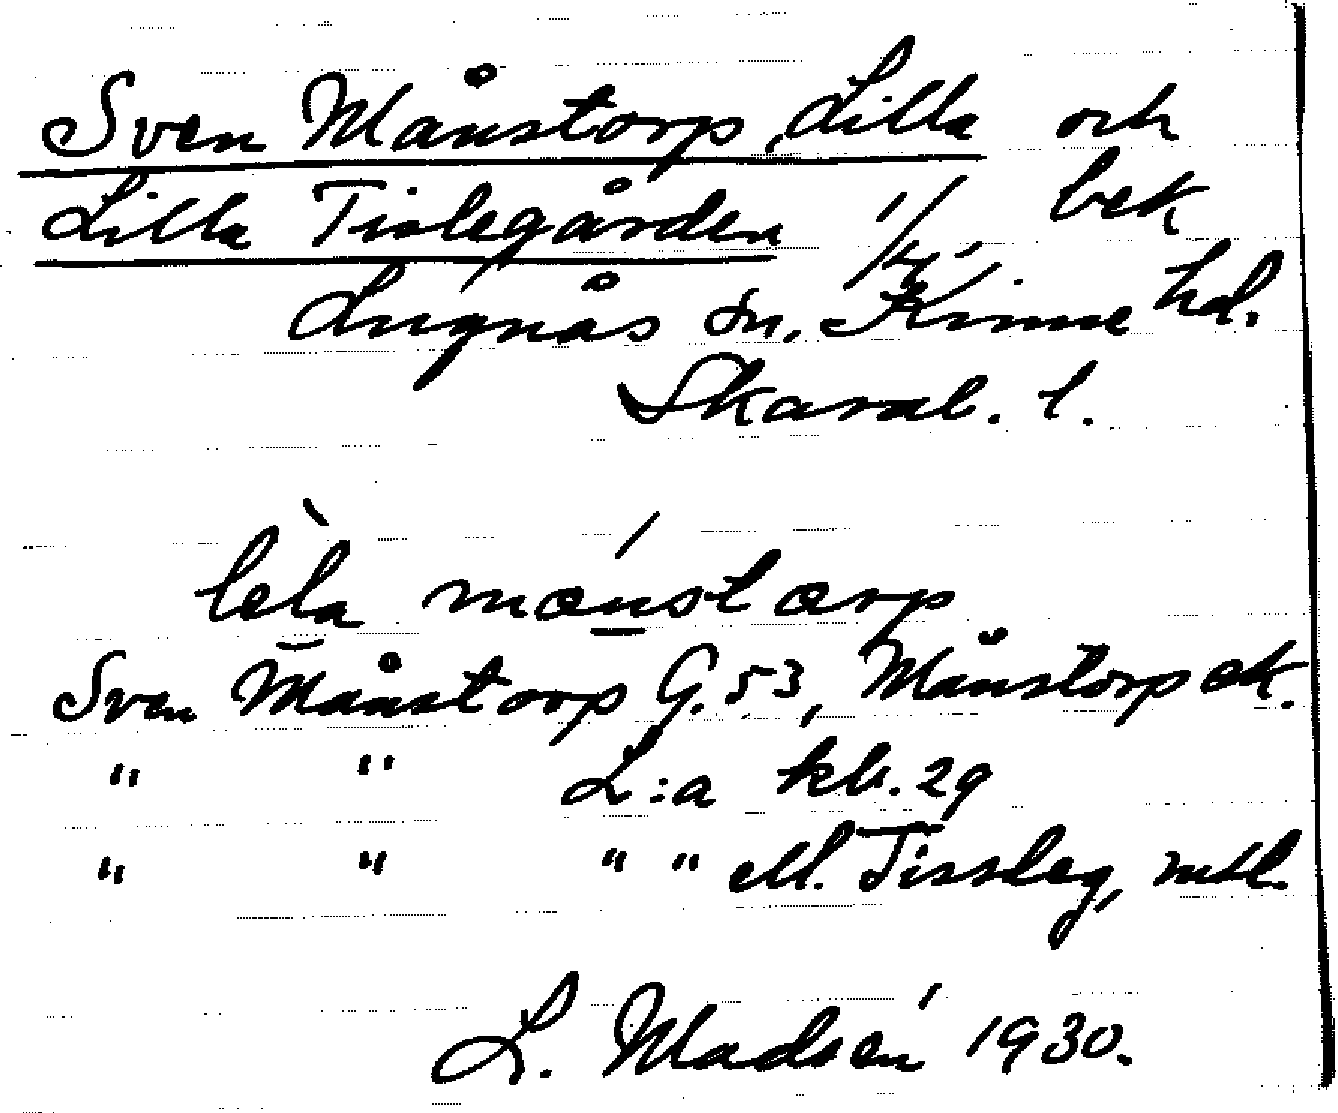 Sven Månstorp, Lilla och
Lilla Tislegården 1/4, bek
Lugnås sn, Kinne hd.
Skarab. l.
lèla mɑnstɑrp
Sven Månstorp G. 53, Månstorp ek.
" " L:a kb. 29
" " " " o M. Tissleg, mtl.
L. Madsén 1930.